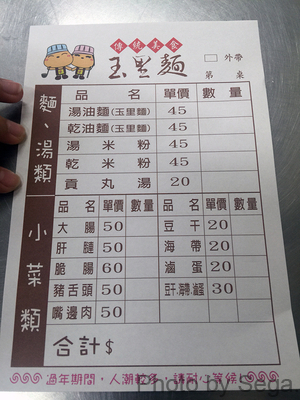 傳統美食
玉里麵
□外帶
第 桌
麵、湯類
品名 單價 數量
湯油麵(玉里麵) 45
乾油麵(玉里麵) 45
湯米粉 45
乾米粉 45
貢丸湯 20
小菜類
品名 單價 數量 品名 單價 數量
大腸 50 豆干 20
肝腱 50 海帶 20
脆腸 60 滷蛋 20
豬舌頭 50 豆干、海帶、滷蛋 30
嘴邊肉 50
合計$
過年期間，人潮較多，請耐心等候
Photo by Sega